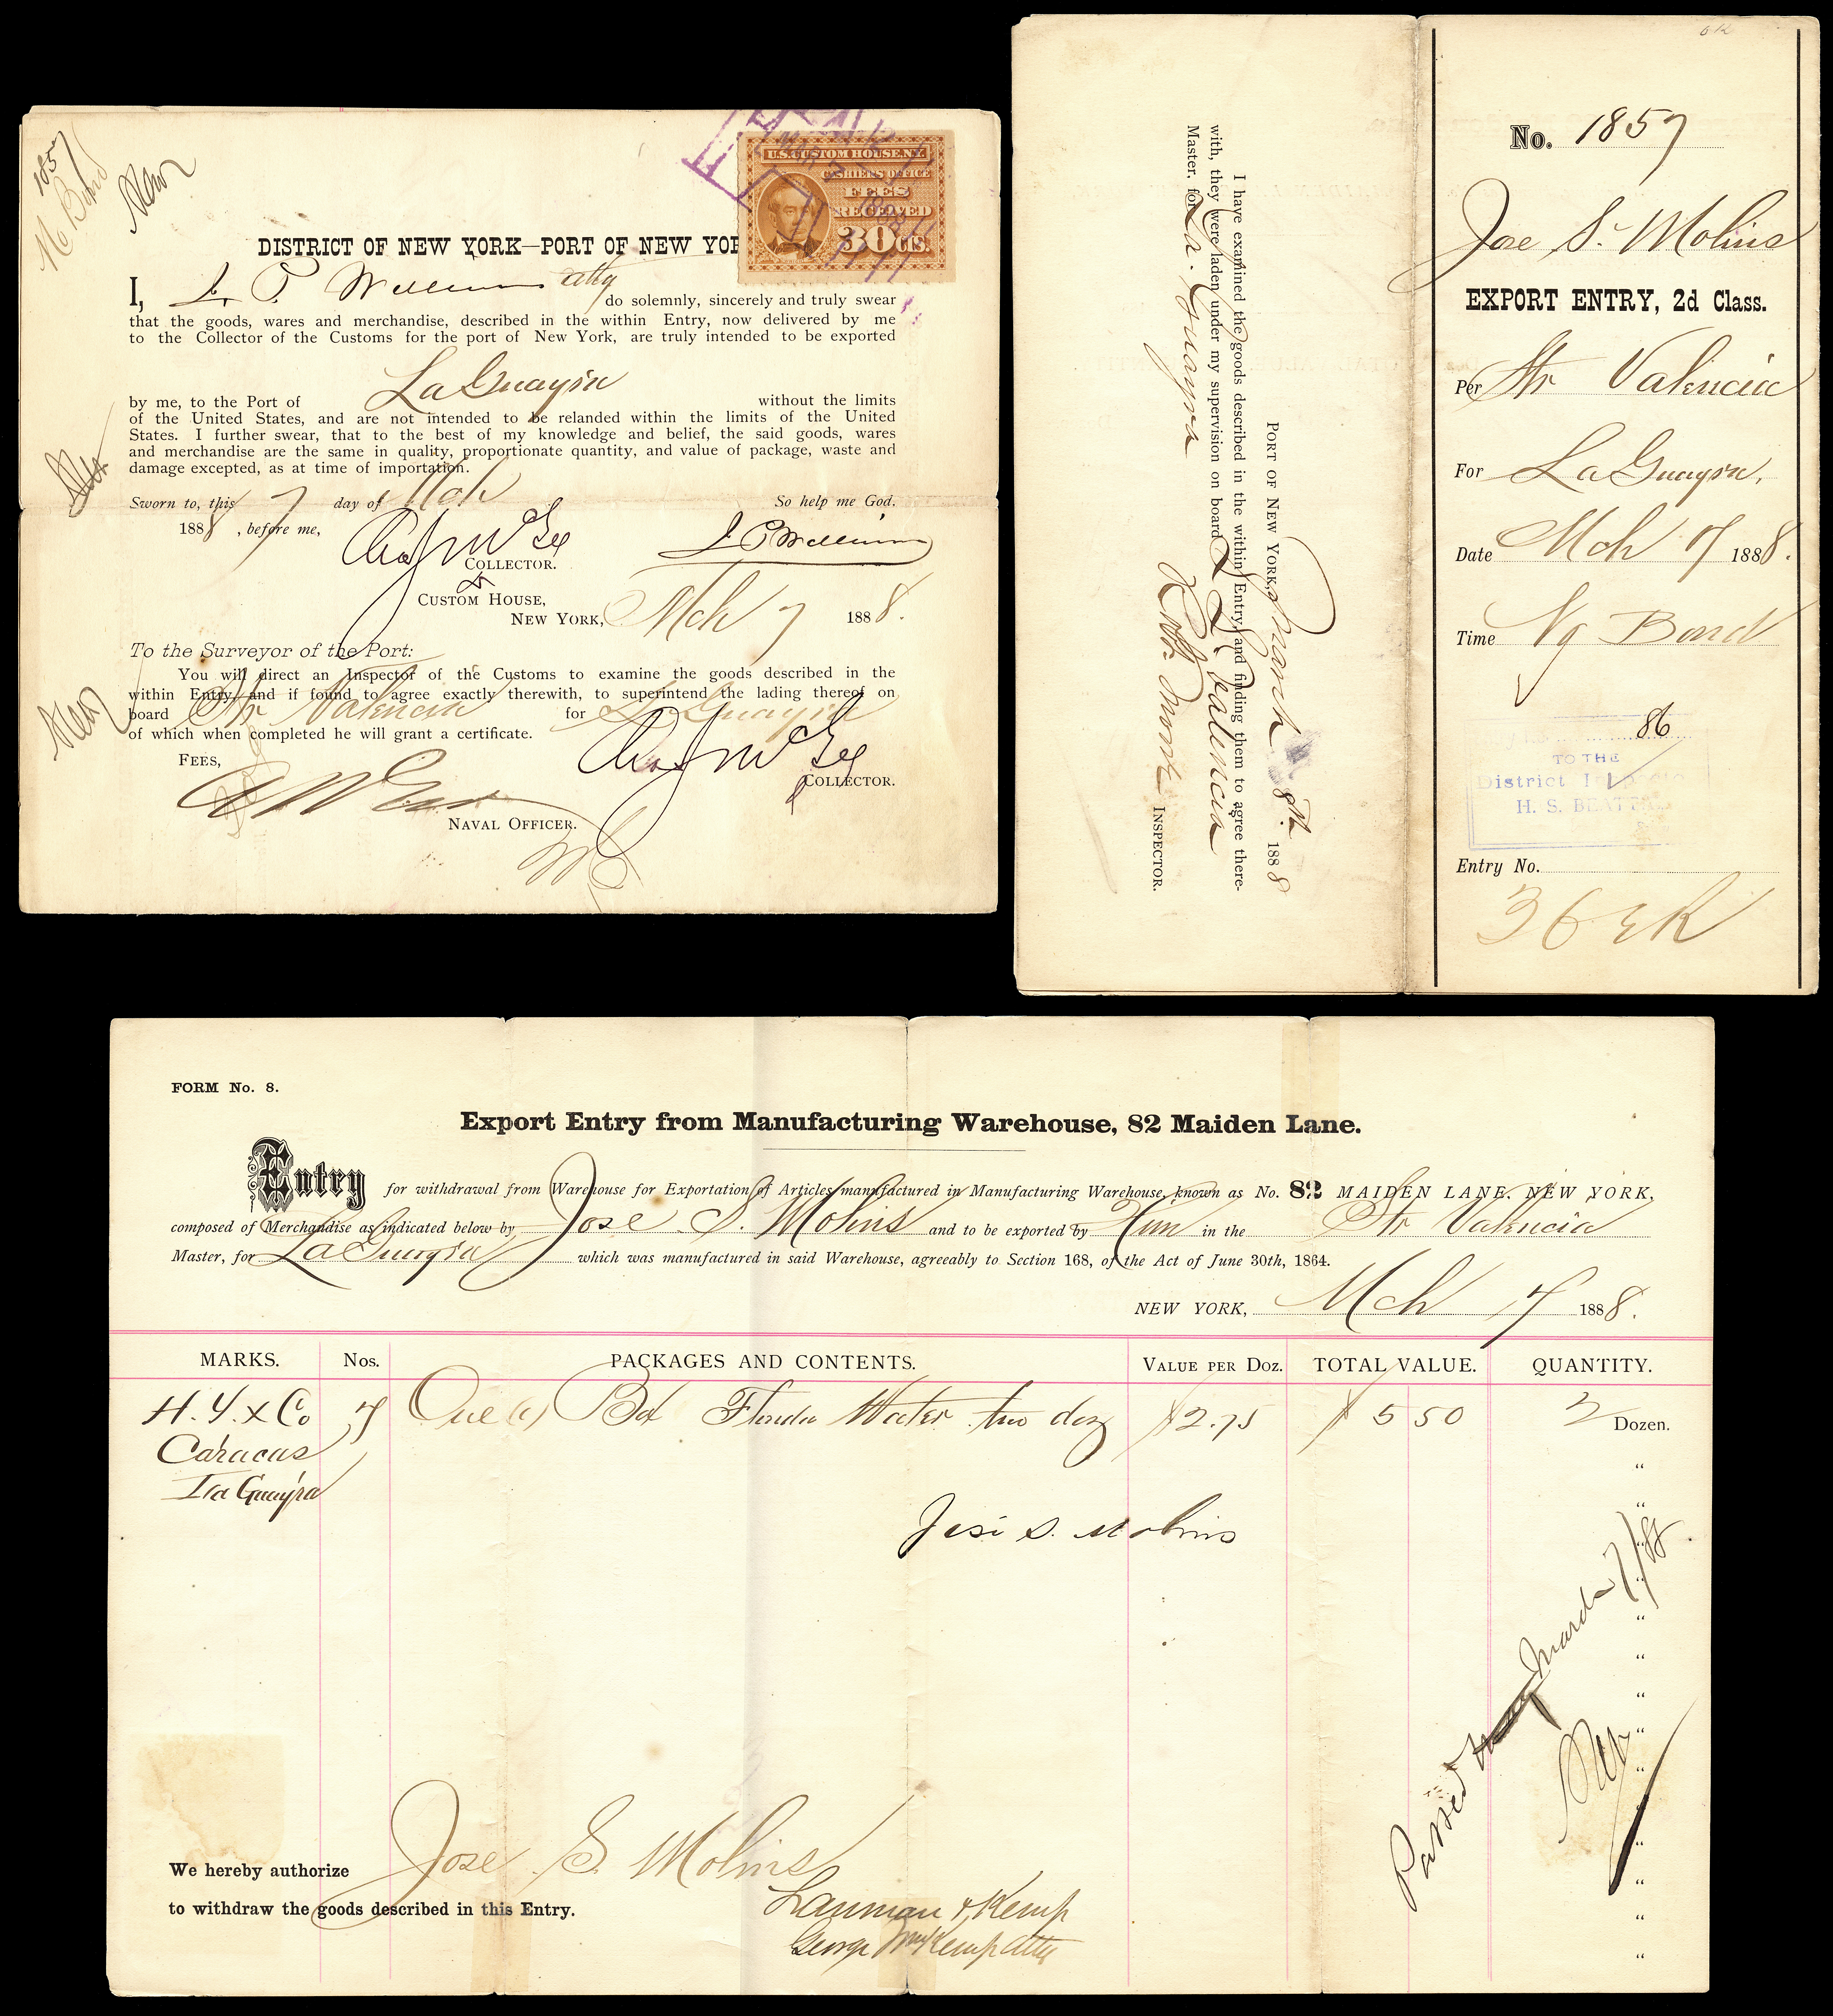 1857
M Bond
U.S. CUSTOM HOUSE N.Y.
CASHIERS OFFICE
FEES
RECEIVED
30 CTS.
DISTRICT OF NEW YORK—PORT OF NEW YOR
I, J. P. Williams atty do solemnly, sincerely and truly swear
that the goods, wares and merchandise, described in the within Entry, now delivered by me
to the Collector of the Customs for the port of New York, are truly intended to be exported
by me, to the Port of LaGuayra without the limits
of the United States, and are not intended to be relanded within the limits of the United
States. I further swear, that to the best of my knowledge and belief, the said goods, wares
and merchandise are the same in quality, proportionate quantity, and value of package, waste and
damage excepted, as at time of importation.
Sworn to, this 7 day of Mch So help me God.
1888, before me, Chas J McGee J P Williams
COLLECTOR.
CUSTOM HOUSE,
NEW YORK, Mch 7 1888.
To the Surveyor of the Port:
You will direct an Inspector of the Customs to examine the goods described in the
within Entry, and if found to agree exactly therewith, to superintend the lading thereof on
board Str Valencia for La Guayra
of which when completed he will grant a certificate.
FEES, Chas J McGee
COLLECTOR.
NAVAL OFFICER.
PORT OF NEW YORK, March 8th. 1888
I have examined the goods described in the within Entry, and finding them to agree there-
with, they were laden under my supervision on board S. S. Valencia
Master, for La. Guayra
INSPECTOR.
No. 1857
Jose S. Molins
EXPORT ENTRY, 2d Class.
Per Str Valencia
For LaGuayra,
Date Mch 7 1888.
Time Ng Bond
86
TO THE
District Inspector
H. S. BEATTY
Entry No.
FORM No. 8.
Export Entry from Manufacturing Warehouse, 82 Maiden Lane.
Entry for withdrawal from Warehouse for Exportation of Articles manufactured in Manufacturing Warehouse, known as No. 82 MAIDEN LANE, NEW YORK,
composed of Merchandise as indicated below by Jose S. Molins and to be exported by him in the Str Valencia
Master, for LaGuayra which was manufactured in said Warehouse, agreeably to Section 168, of the Act of June 30th, 1864.
NEW YORK, Mch 7 1888.
MARKS. Nos. PACKAGES AND CONTENTS. VALUE PER DOZ. TOTAL VALUE. QUANTITY.
H. Y. & Co 7 One (1) Box Florida Water two doz $2.75 $ 5 50 2 Dozen.
Caracas "
La Guayra "
José S. Molins
"
"
"
"
"
"
"
"
"
"
"
Passed March 7/88
We hereby authorize Jose S. Molins
to withdraw the goods described in this Entry.
Lanman & Kemp
George Wm Kemp Atty